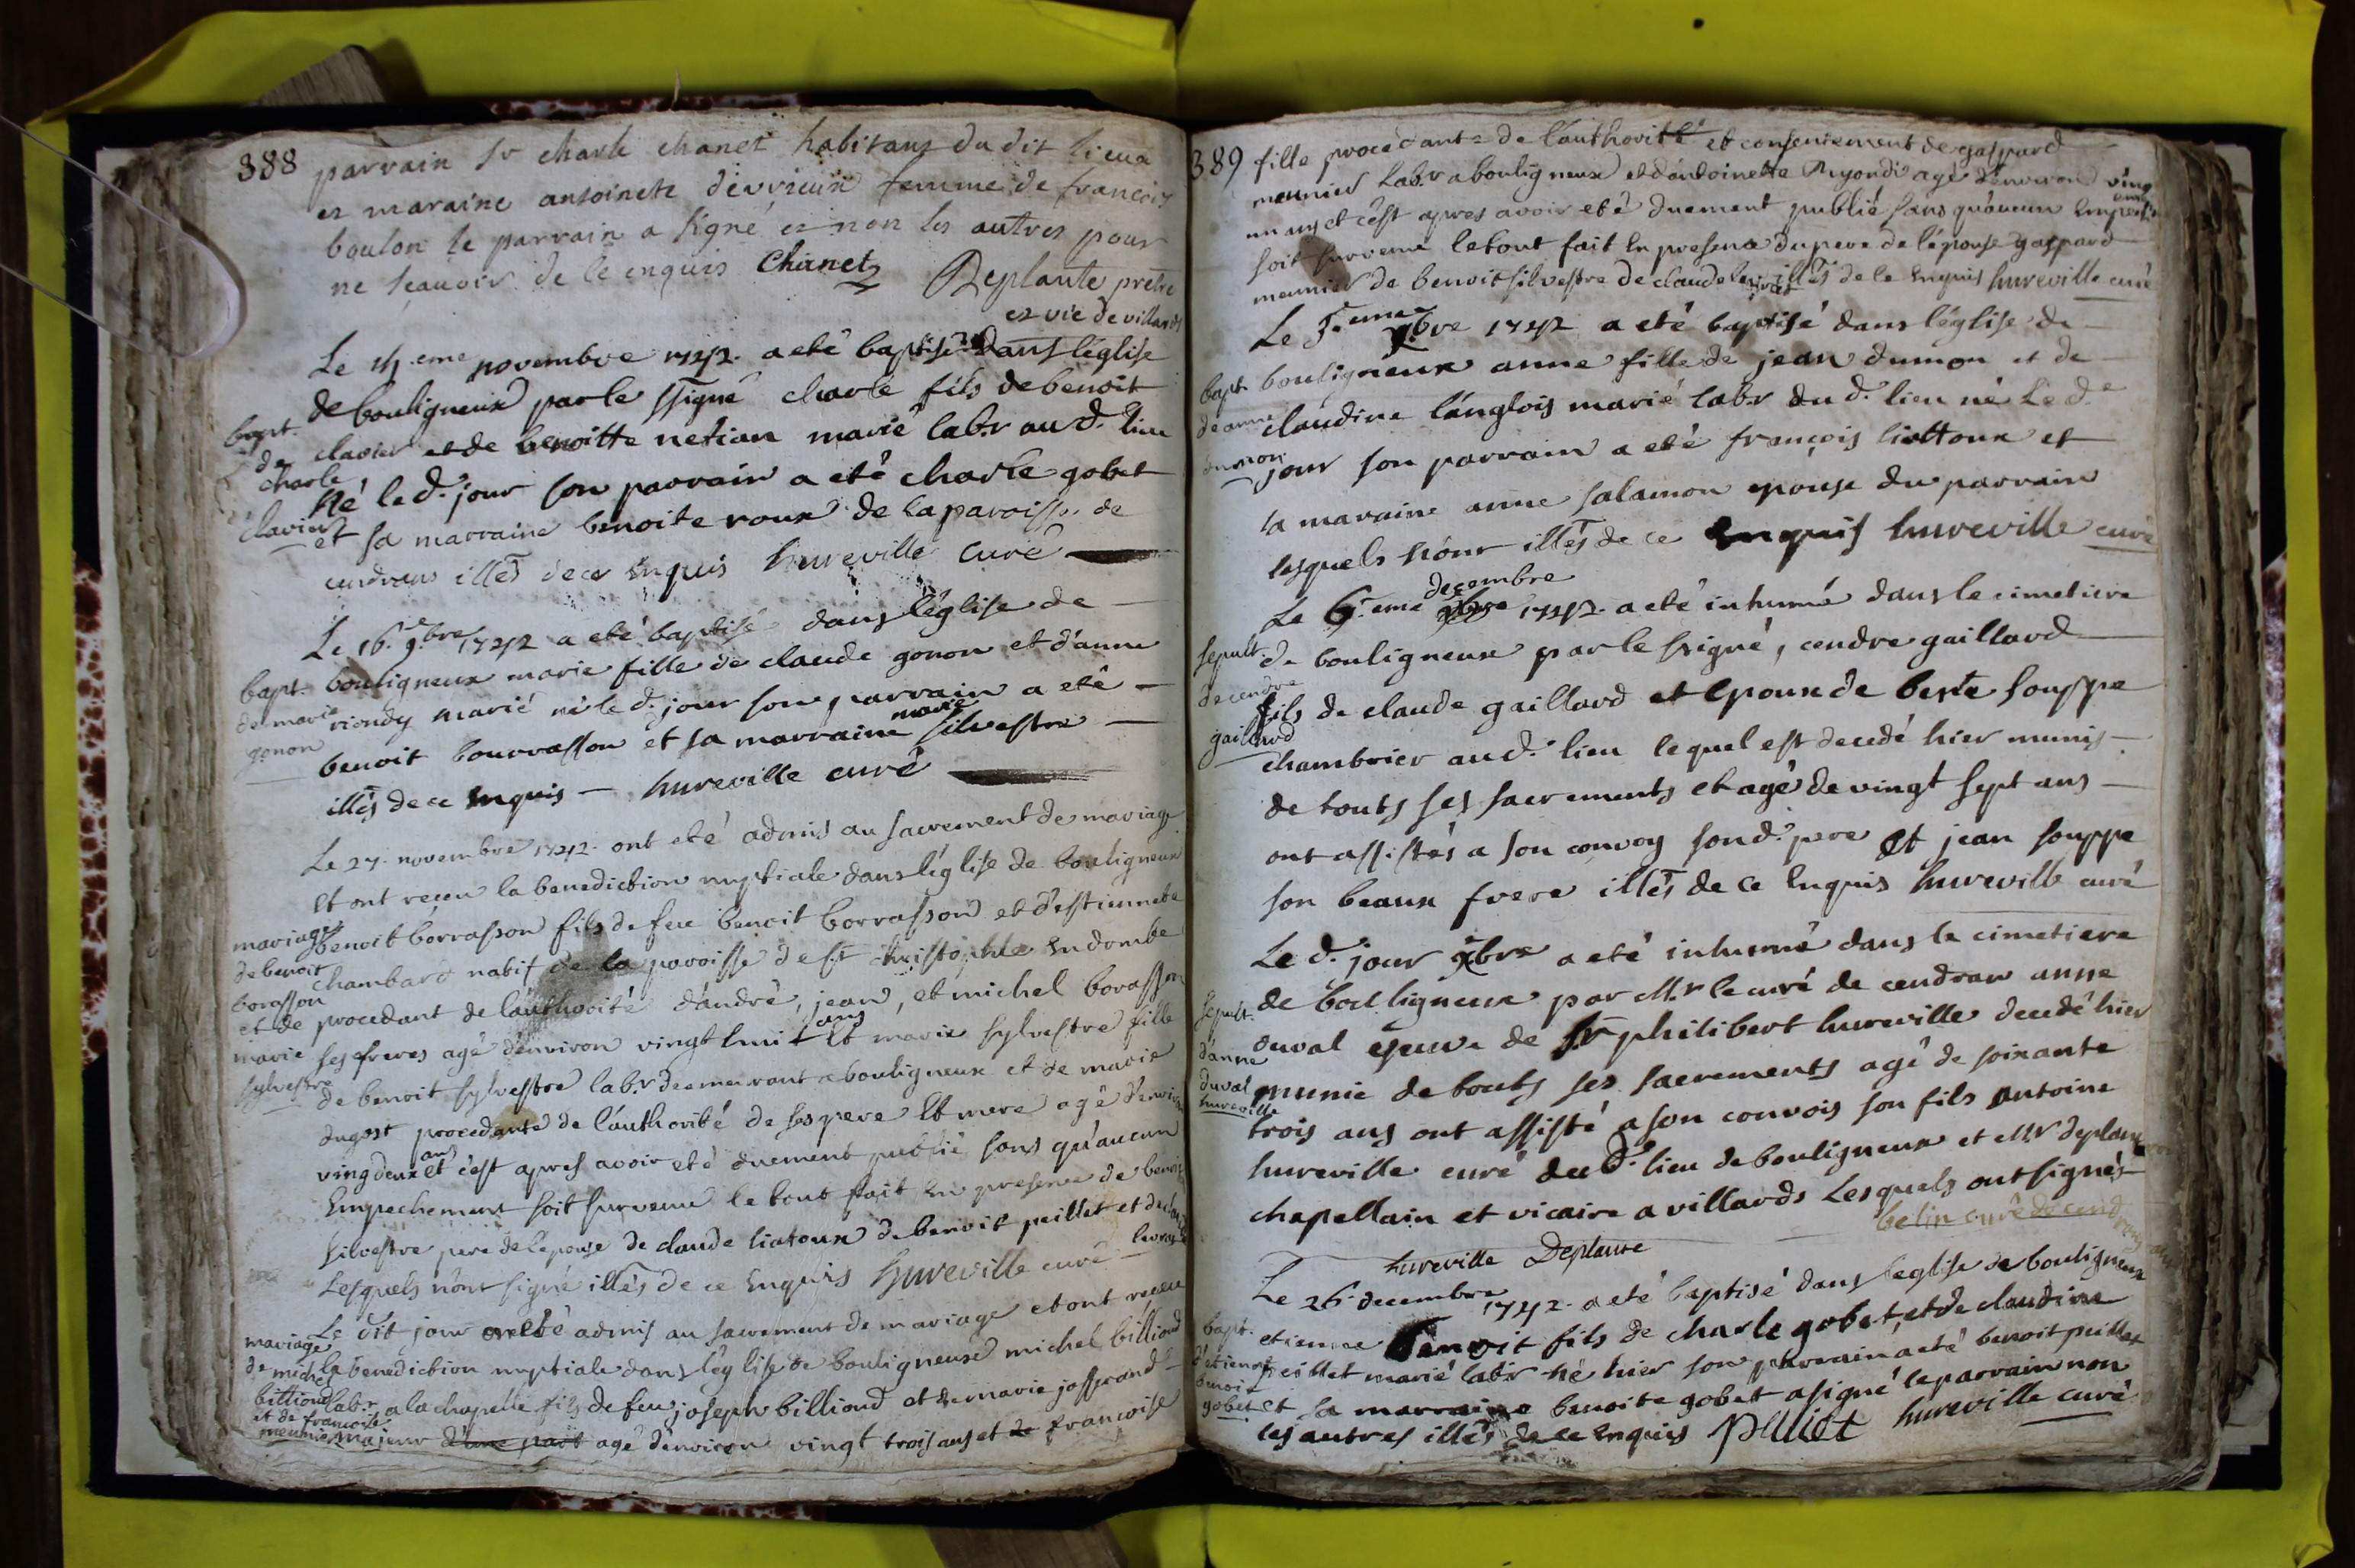 388
parrain sr charle chanet habitans du dit lieu a
et maraine antoinete devrieux femme de francois
boulon le parrain a signé et non les autres pour
ne sçauoir de le enquis Chanet Deplante pretre
et vic de villards
Le eme novembre 1742 a eté baptisé dans léglise
de bouligneux par le ssigné charle fils de benoit
clavier et de benoitte netian marié labr au d. lieu
né le d. jour son parrain a eté charle gobet
et sa marraine benoite roux de la paroisse de
cendrans illés de ce enquis hureville curé
bapt.
de
charle
clavier
Le 16e 9bre 1742 a eté baptisé dans léglise de
bouligneux marie fille de claude gonon et d'anne
riondy marié né le d. jour son parrain a eté
benoit bourrasson et sa marraine marie silvestre
illés de ce enquis hureville curé
bapt.
de marie
gonon
Le 27. novembre 1742. ont eté admis au sacrement de mariage
et ont reçeu la benediction nuptiale dans léglise de bouligneux
benoit borrasson fils de feu benoit borrasson et d'estiennete
chambard natif de la paroisse de st christophle en dombe
procedant de l'authorité d'andré, jean, et michel borasson
ses freres agé d'environ vingt huit ans et marie sylvestre fille
de benoit sylvestre labr demeurant a bouligneux et de marie
dugost procedante de l'authorité de ses pere et mere agé d'environ
ving deux ans et c'est apres avoir eté duement publié sans qu'aucun
Empechement soit survenu le tout fait en presence de benoit
silvestre pere de l'epouse de claude liatoux de benoit peillet et de claude
levrat
Lesquels n'ont signé illés de ce enquis hureville curé
mariage
de benoit
borasson
et de
marie
sylvestre
Le dit jour ont eté admis au sacrement de mariage et ont receu
la benediction nuptiale dans léglise de bouligneux michel billioud
labr a la chapelle fils de feu joseph billioud et de marie josserand
majeur d'une part agé d'environ vingt trois ans et de francoise
mariage
de michel
billioud
et de francoise
meunier
389
fille procédante de l'authorité et consentement de gaspard
meunier labr a bouligneux et d'antoinette Ryondi agé d'environ ving
un ans et c'est apres avoir eté duement publié sans qu'aucun Empech
soit survenu le tout fait en presence du pere de l'épouse gaspard
meunier de benoit silvestre de claude levrat illés de le enquis hureville curé
Le 5eme xbre 1742 a eté baptisé dans léglise de
bouligneux anne fille de jean dumon et de
claudine langlois marié labr du d. lieu né le d.
jour son parrain a eté françois liottoux et
sa maraine anne salamon epouse du parrain
lesquels n'ont illés de ce Enquis hureville curé
bapt.
de anne
dumon
Le 6.eme decembre 1742. a eté inhumé dans le cimetiere
de bouligneux par le ssigné, cendre gaillard
fils de claude gaillard et epoux de berte souppe
chambrier au d. lieu lequel est decedé hier munis
de touts ses sacrements et agé de vingt sept ans
ont assistés a son convoy son d. pere et jean souppe
son beaux frere illés de ce enquis hureville curé
sepult.
de cendre
gaillard
Le d. jour xbre a eté inhumé dans le cimetiere
de bouligneux par Mr le curé de cendran anne
duval epouse de sr philibert hureville decedé hier
munie de touts ses sacrements agé de soixante
trois ans ont assisté a son convois son fils Antoine
hureville curé du d. lieu de bouligneux et Mr deplante
chapellain et vicaire a villards Lesquels ont signés
belin curé de cendrans
hureville Deplante
sepult.
d'anne
duval
hureville
Le 26. decembre 1742. a eté baptisé dans leglise de bouligneux
etienne benoit fils de charle gobet, et de claudine
peillet marié labr né hier son parrain a eté benoit peillet
et sa marraine benoite gobet a signé le parrain non
les autres illés de ce enquis Peillet hureville curé
bapt.
d'etienne
benoit
gobet